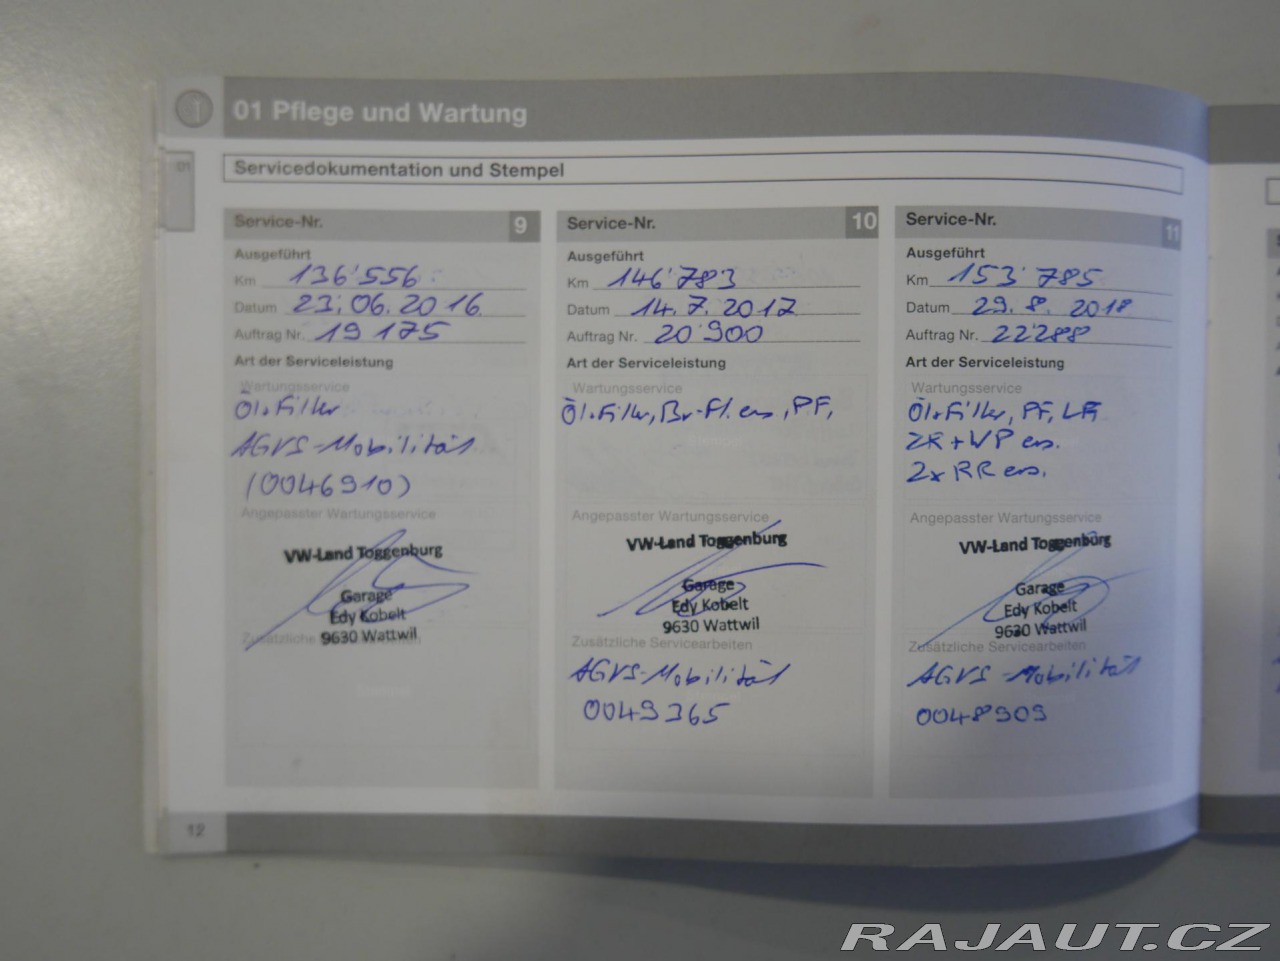 01 Pflege und Wartung
01
Servicedokumentation und Stempel
Service-Nr. 9
Ausgeführt
Km 136'556
Datum 23.06.2016
Auftrag Nr. 19175
Art der Serviceleistung
Wartungsservice
Öl+Filter
AGVS-Mobilität
(0046910)
Angepasster Wartungsservice
VW-Land Toggenburg
Garage
Edy Kobelt
9630 Wattwil
Zusätzliche Servicearbeiten
Service-Nr. 10
Ausgeführt
Km 146'783
Datum 14.7.2017
Auftrag Nr. 20'900
Art der Serviceleistung
Wartungsservice
Öl+Filter, Br-Fl. ers, PF,
Angepasster Wartungsservice
VW-Land Toggenburg
Garage
Edy Kobelt
9630 Wattwil
Zusätzliche Servicearbeiten
AGVS-Mobilität
0049365
Service-Nr. 11
Ausgeführt
Km 153'785
Datum 29.8.2018
Auftrag Nr. 22288
Art der Serviceleistung
Wartungsservice
Öl+Filter, PF, LF,
ZR+WP ers.
2x RR ers.
Angepasster Wartungsservice
VW-Land Toggenburg
Garage
Edy Kobelt
9630 Wattwil
Zusätzliche Servicearbeiten
AGVS-Mobilität
0048909
12
RAJAUT.CZ